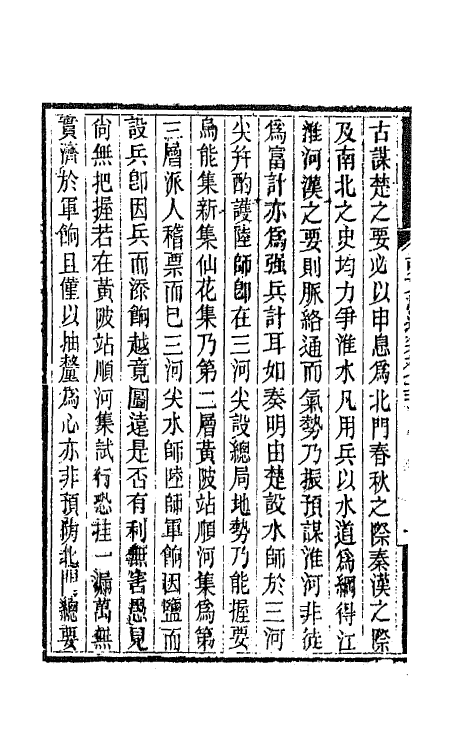 古謀楚之要必以申息為北門春秋之際秦漢之際
及南北之史均力爭淮水凡用兵以水道為綱得江
淮河漢之要則脈絡通而氣勢乃振預謀淮河非徒
為富計亦為強兵計耳如奏明由楚設水師於三河
尖幷酌護陸師卽在三河尖設總局地勢乃能握要
烏能集新集仙花集乃第二層黃陂站順河集為第
三層派人稽票而已三河尖水師陸師軍餉因鹽而
設兵卽因兵而添餉越竟圖遠是否有利無害愚見
尙無把握若在黃陂站順河集試行恐挂一漏萬無
實濟於軍餉且僅以抽釐為心亦非預防北門總要